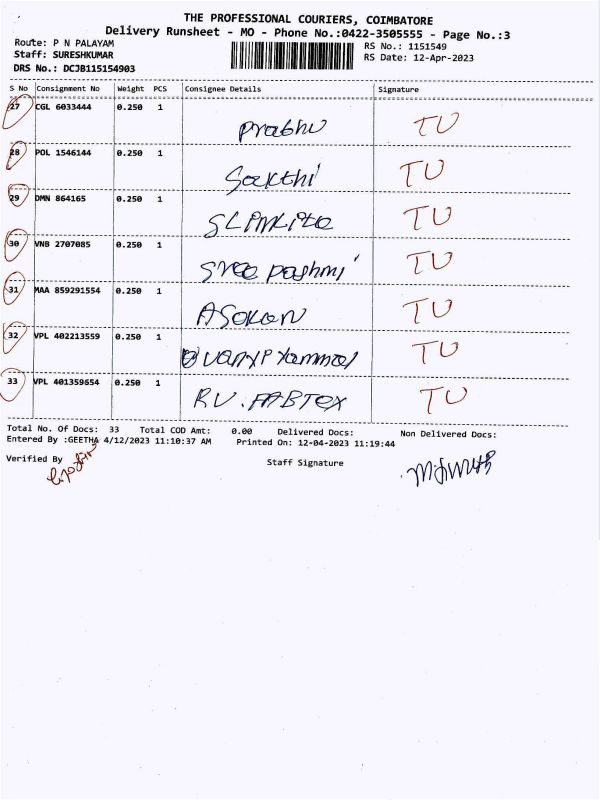 THE PROFESSIONAL COURIERS, COIMBATORE
Delivery Runsheet - MO - Phone No.:0422-3505555 - Page No.:3
Route: P N PALAYAM
RS No.: 1151549
Staff: SURESHKUMAR
RS Date: 12-Apr-2023
DRS No.: DCJB115154903
S No Consignment No Weight PCS Consignee Details Signature
27 CGL 6033444 0.250 1
Prabhu TU
28 POL 1546144 0.250 1
Sakthi TU
29 DMN 864165 0.250 1
TU
30 VNB 2707085 0.250 1
Sree TU
31 MAA 859291554 0.250 1
ASOKAN TU
32 VPL 402213559 0.250 1
TU
33 VPL 401359654 0.250 1
RV. FABTEX TU
Total No. Of Docs: 33 Total COD Amt: 0.00 Delivered Docs: Non Delivered Docs:
Entered By :GEETHA 4/12/2023 11:10:37 AM Printed On: 12-04-2023 11:19:44
Verified By Staff Signature